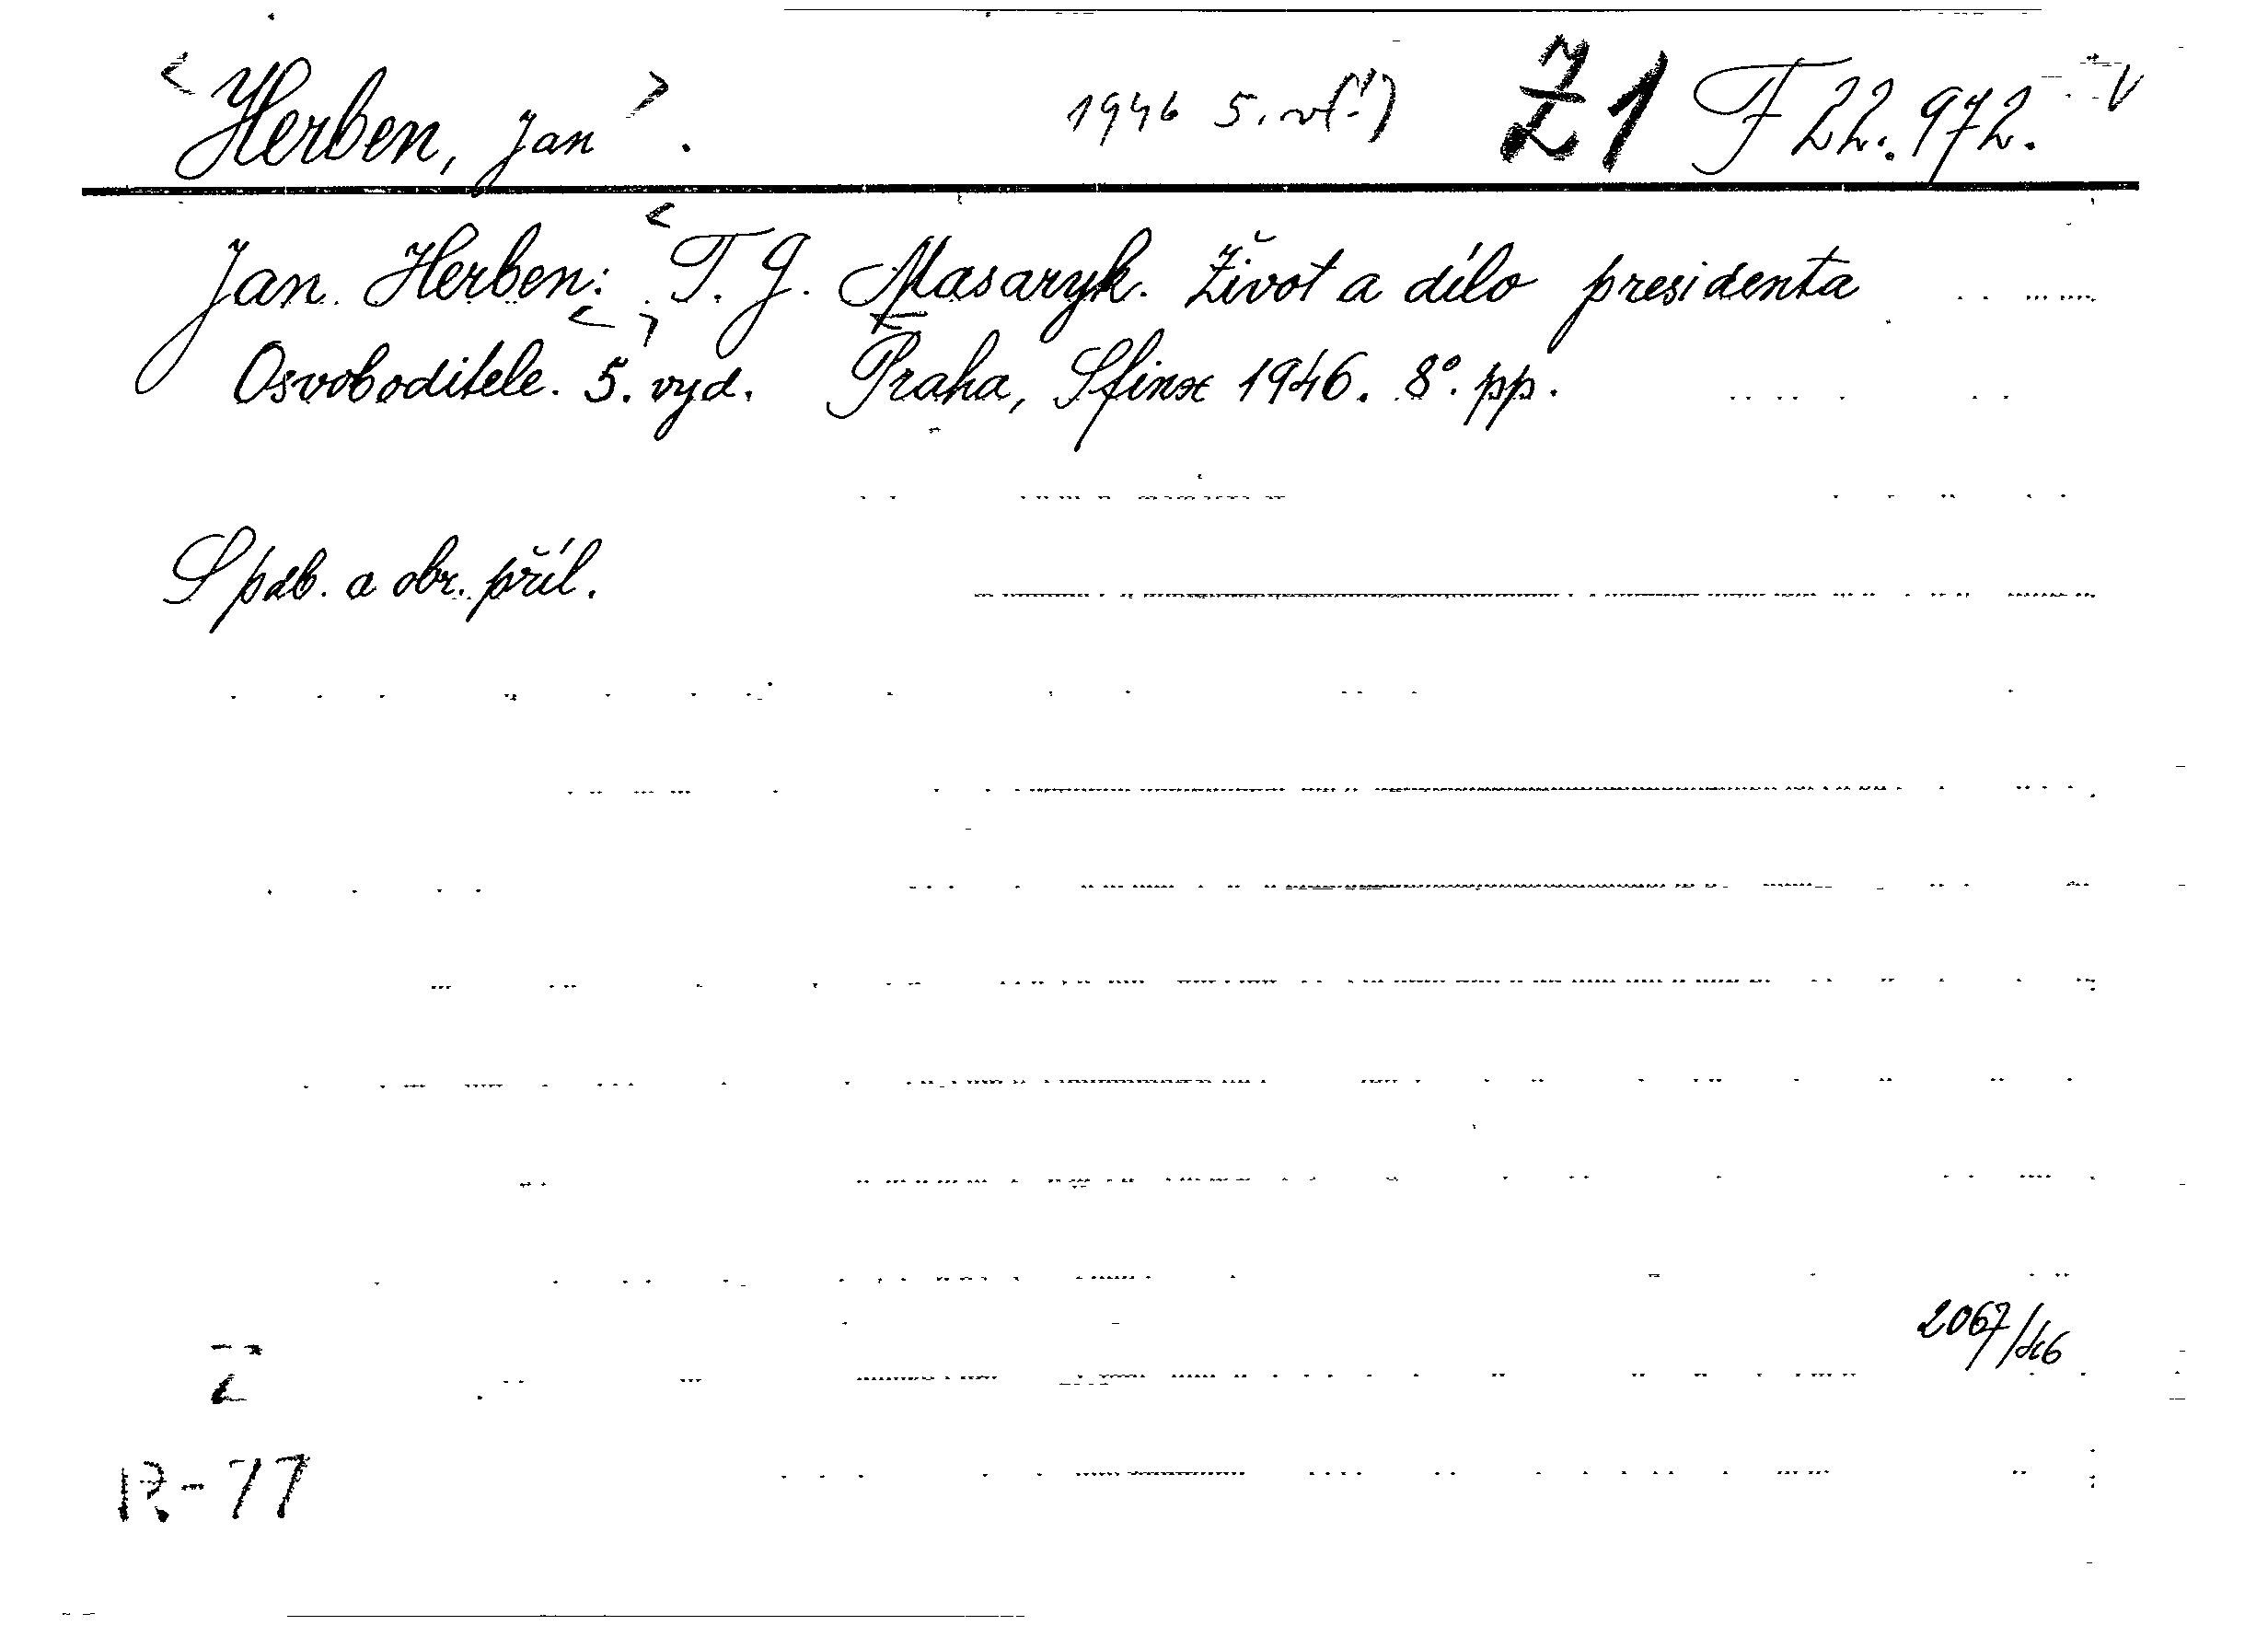 <Herben, Jan>. 1946 5. Ž1 F 22.972. V
Jan Herben: <T. G. Masaryk. Život a dílo presidenta
Osvoboditele. <5.> vyd. Praha, Sfinx 1946. 8°. pp.
S pdb. a obr. příl.
2067/46
R-77